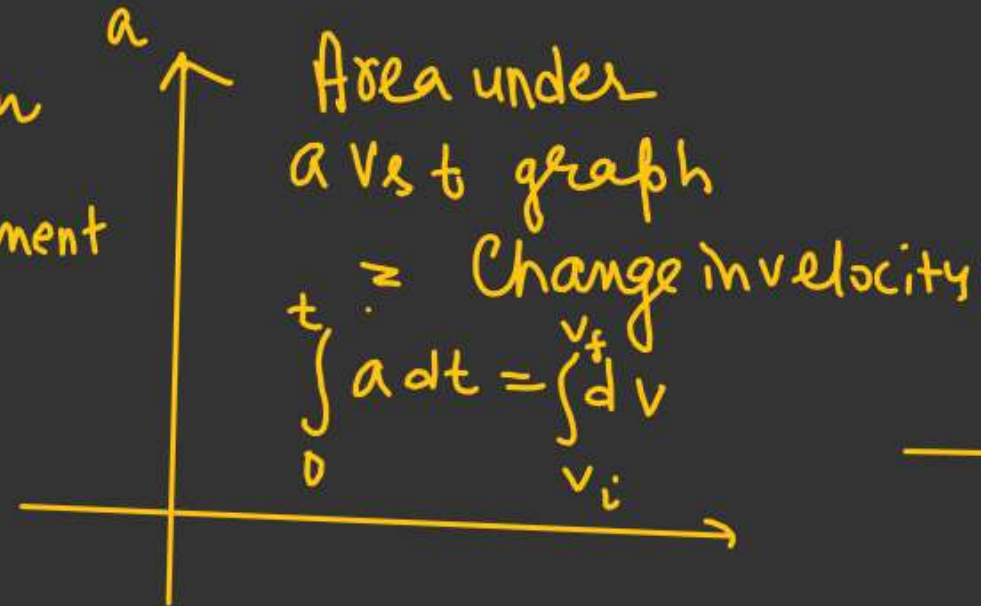 a
Area under
a vs t graph
= Change in velocity
∫₀ᵗ a dt = ∫ᵥᵢᵛᶠ dv